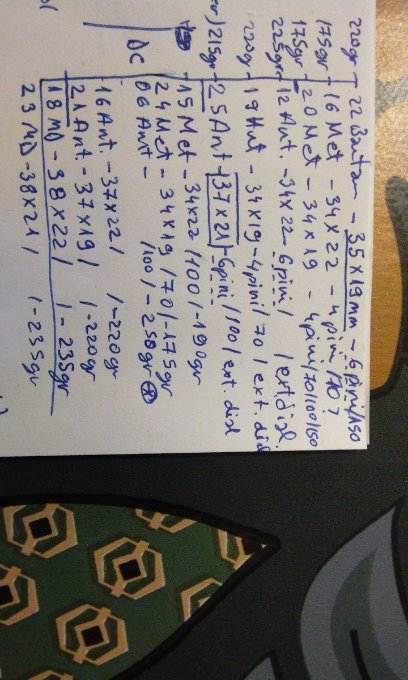 220gr - 22 Bantam - 35x19mm - 6 pini/150
175gr - 16 Met - 34x22 - 4 pini /70?
175gr - 20 Met - 34x19 - 4pini/70/100/150
225gr - 12 Ant. - 34x22 - 6pini / /ext.disl
220gr - 19 Ant - 34x19 - 4pini/70/ext.disl
215gr - 25 Ant - 37x21 - 6pini /100/ext.disl
15 Met - 34x22 /100/-190gr
24 Met - 34x19 /70/-175gr
DC 06 Ant - /100/-258gr
16 Ant. - 37x22/ /-220gr
21 Ant. - 37x19/ /-220gr
18 MD - 38x22/ /-235gr
23 MD - 38x21/ /-235gr